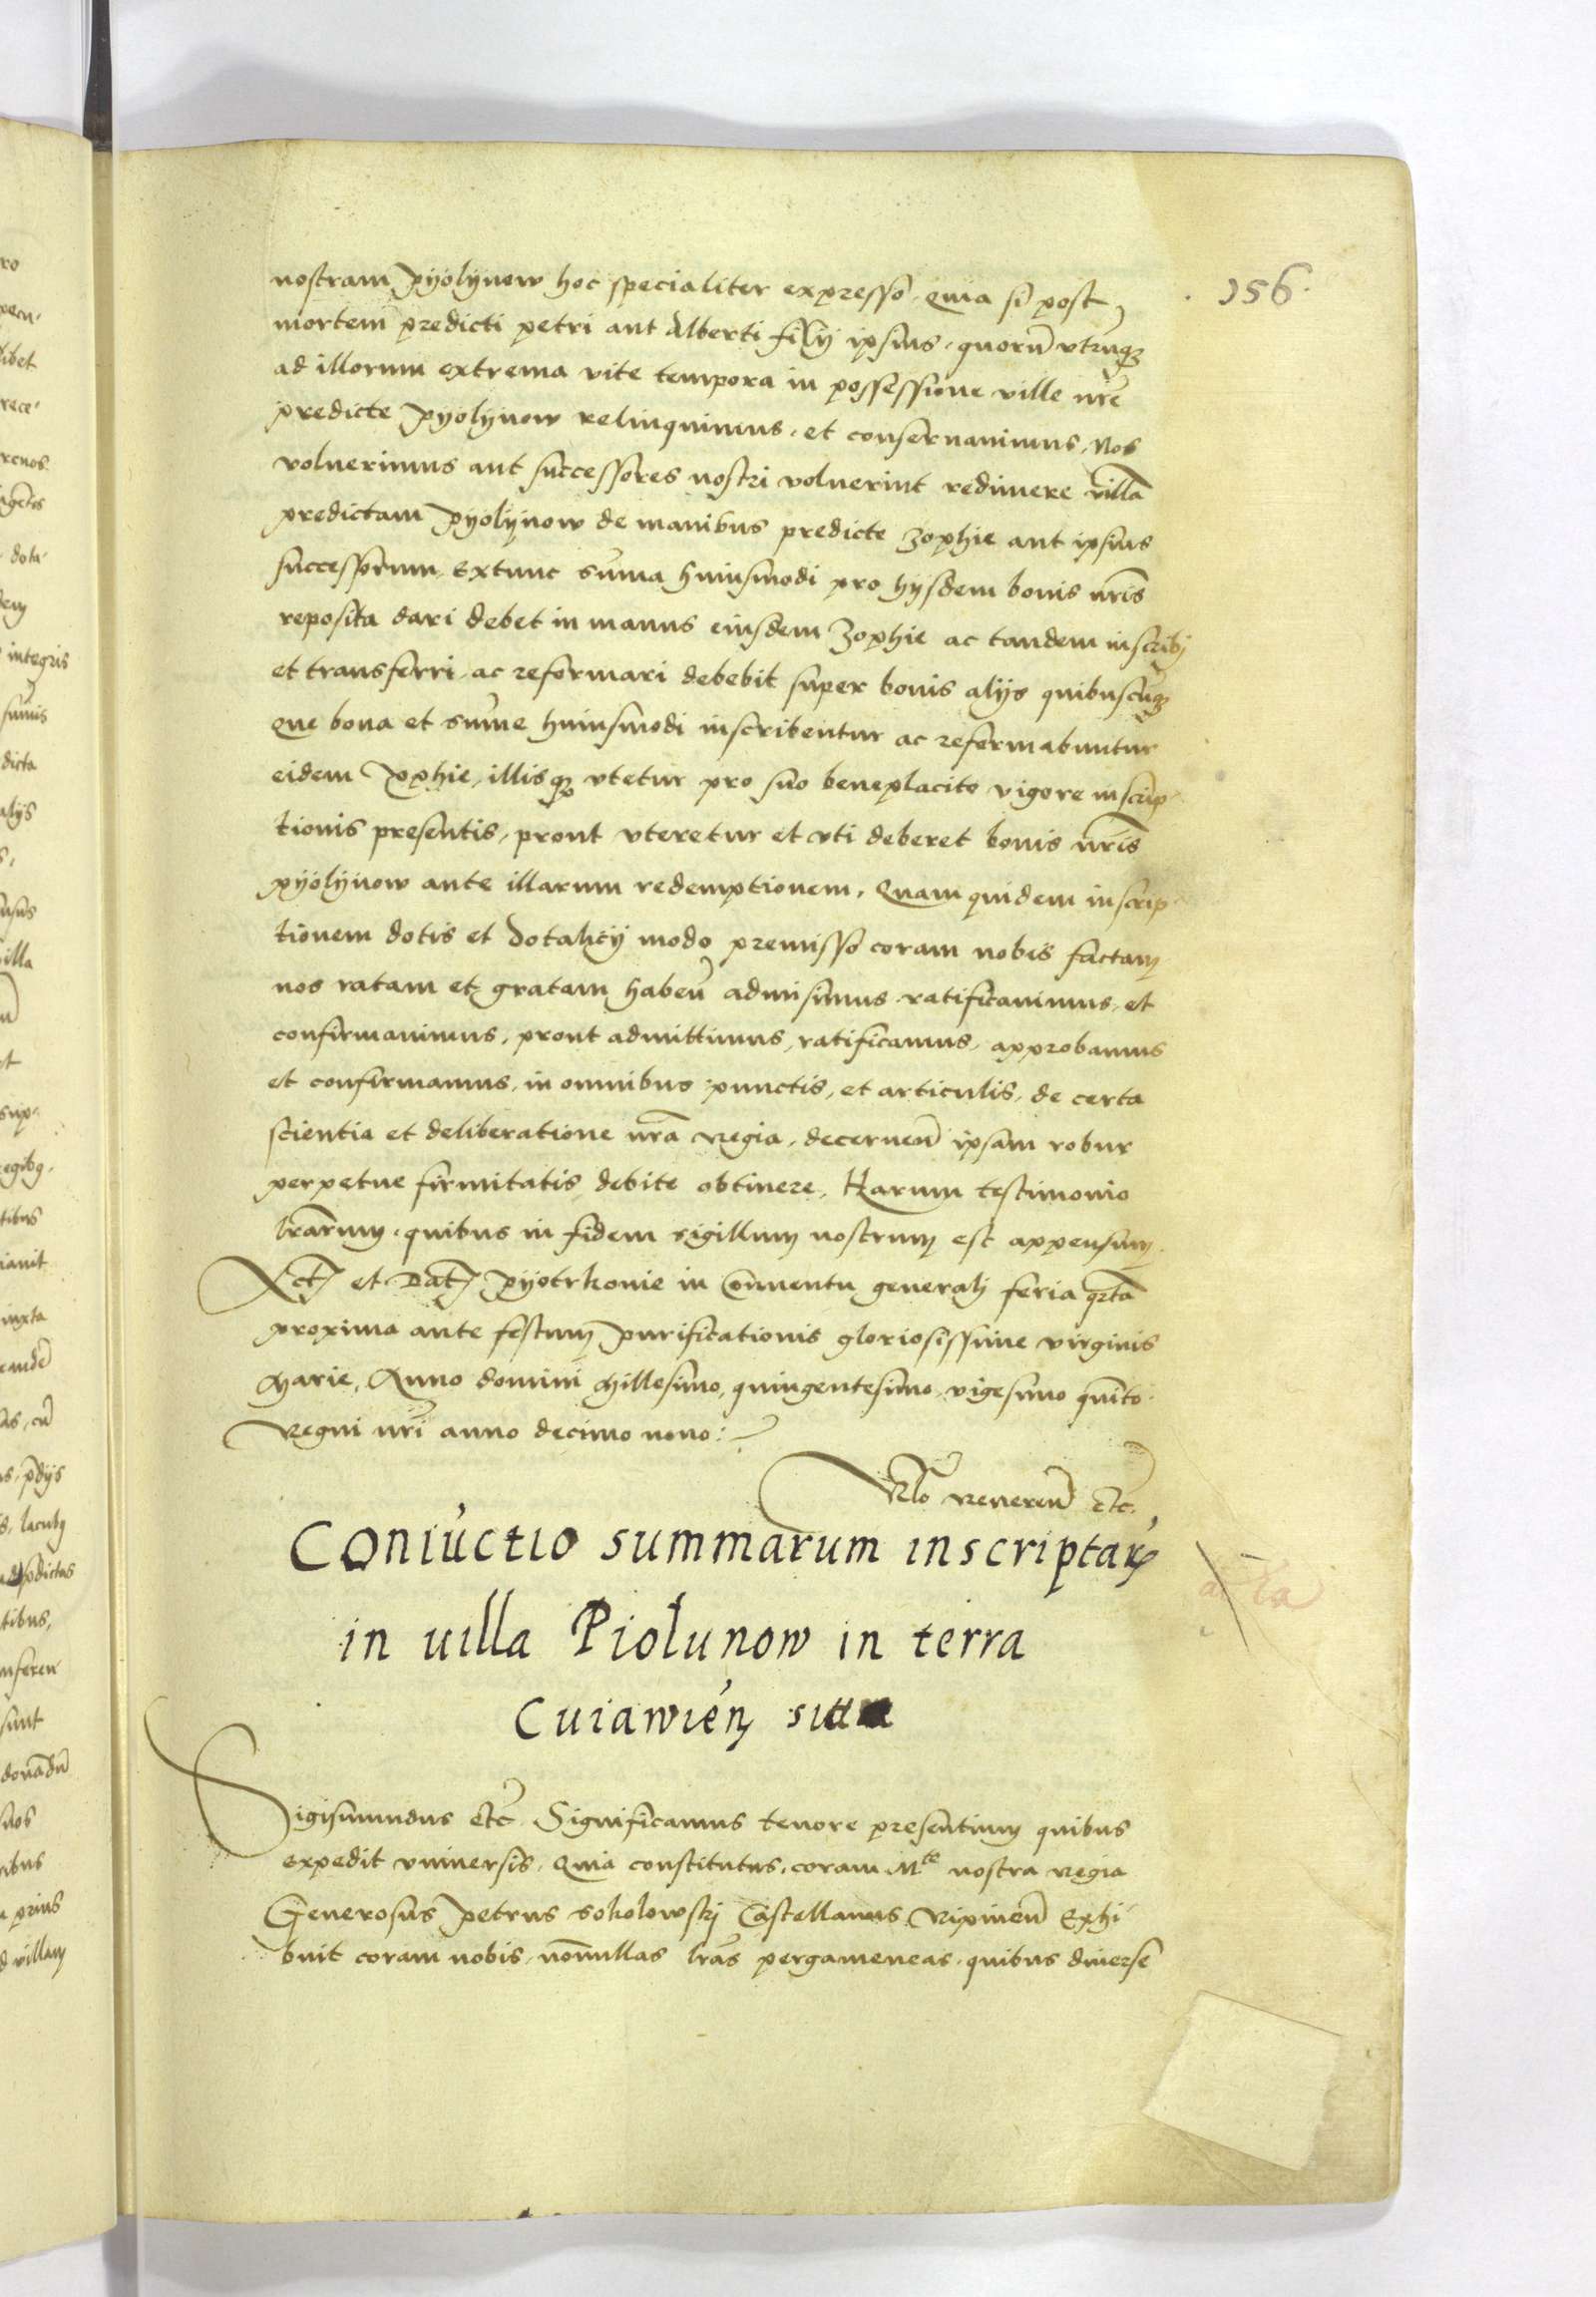 156
nostram Pyolynow hoc specialiter expresso. Quia si post
mortem predicti petri aut Alberti filij ipsius, quorū vtrūqȝ
ad illorum extrema vite tempora in possessione ville nrē
predicte Pyolynow relinquimus, et conservavimus, Nos
voluerimus aut successores nostri voluerint redimere villā
predictam Pyolynow de manibus predicte Zophie aut ipsius
successorum, Extunc sūma huiusmodi pro hysdem bonis nrīs
reposita dari debet in manus eiusdem Zophie ac tandem inscribj
et transferri, ac reformari debebit super bonis alijs quibuscūqȝ
Que bona et sūme huiusmodi inscribentur ac reformabuntur
eidem Zophie, illisqȝ vtetur pro suo beneplacito vigore inscrip
tionis presentis, prout vteretur et vti deberet bonis nrīs
pyolynow ante illarum redemptionem, Quam quidem inscrip
tionem dotis et dotalicij modo premisso coram nobis factam
nos ratam et gratam habeñ admisimus ratificavimus, et
confirmavimus, prout admittimus, ratificamus, approbamus
et confirmamus, in omnibus punctis, et articulis, de certa
scientia et deliberatione nrā Regia, decerneñ ipsam robur
perpetue firmitatis debite obtinere, Harum testimonio
lrārum, quibus in fidem sigillum nostrum est appensum.
Act et Dat Pyotrkovie in Conventu generalj feria qrtā
proxima ante festum Purificationis gloriosissime virginis
Marie, Anno domini Millesimo, quingentesimo, vigesimo quīto
Regni nrī anno decimo nono:
Rlō Reverenđ etc.
Coniūctio summarum inscriptaꝝ
in uilla Piolunow in terra
Cuiawień sitta
Sigismundus etc Significamus tenore presentium quibus
expedit vniversis, Quia constitutus, coram Mte nostra Regia
Generosus Petrus Sokolowskj Castellanus Ripineñ Exhi
buit coram nobis, nōnullas lrās pergameneas, quibus diverse